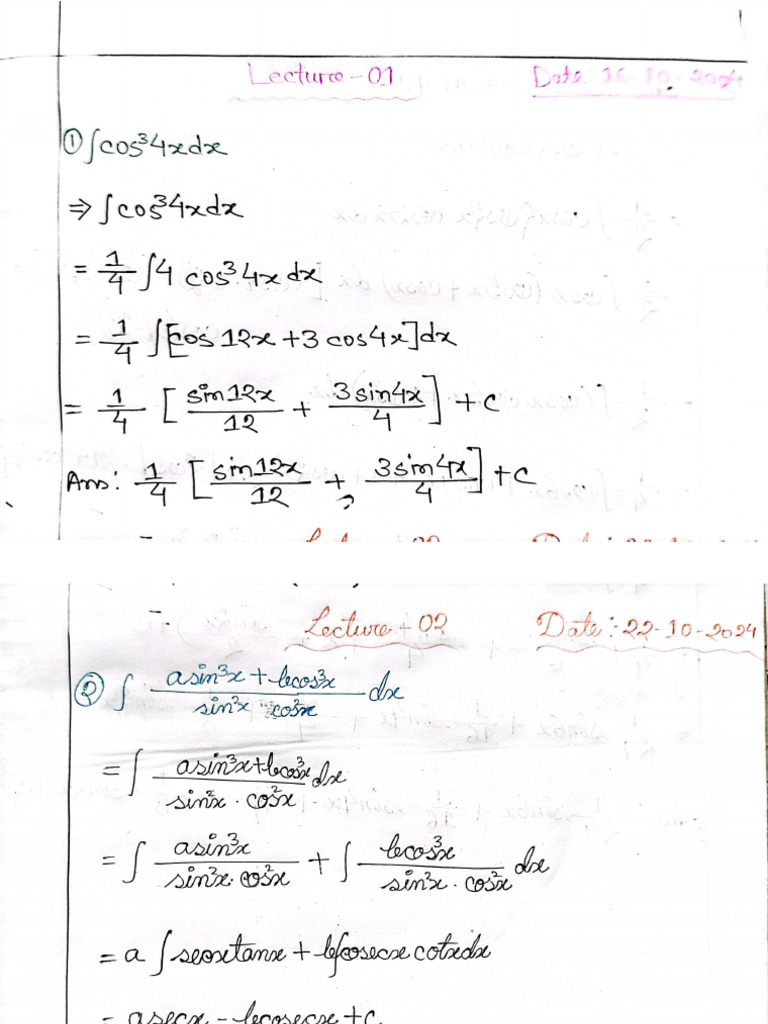 Lecture-01 Date: 16-10-2024
① ∫cos³4xdx
⇒ ∫cos³4xdx
= 1/4 ∫4 cos³4x dx
= 1/4 ∫[cos12x + 3 cos4x]dx
= 1/4 [sin12x/12 + 3sin4x/4] + c
Ans: 1/4 [sin12x/12 + 3sin4x/4] + c
Lecture-02 Date:-22-10-2024
② ∫ asin³x+bcos³x/sin²x cos²x dx
= ∫ asin³x+bcos³x/sin²x·cos²x dx
= ∫ asin³x/sin²x·cos²x + ∫ bcos³x/sin²x·cos²x dx
= a ∫secxtanx + b∫cosecx cotxdx
= asecx - bcosecx + c.